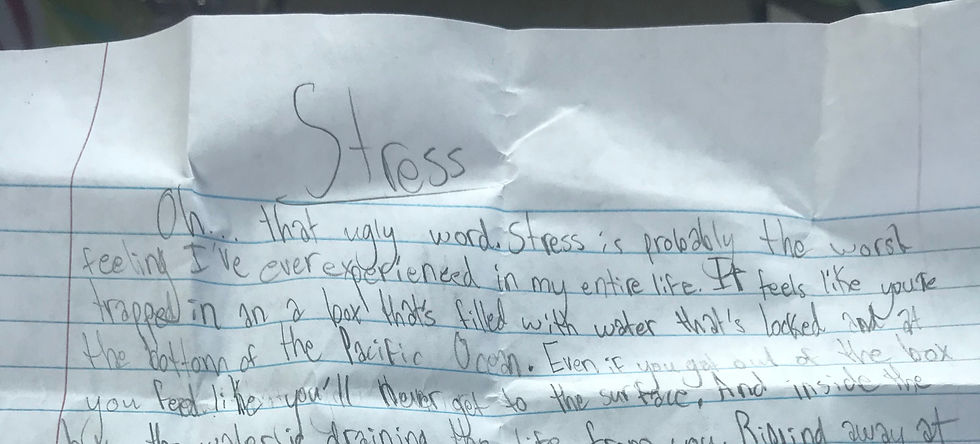 Stress
Oh... that ugly word. Stress is probably the worst
feeling I've ever experieneed in my entire life. It feels like you're
trapped in an a box that's filled with water that's locked and at
the bottom of the Pacific Ocean. Even if you get out of the box
you feel like you'll Never get to the surface, And inside the
the draining the life from you. away at